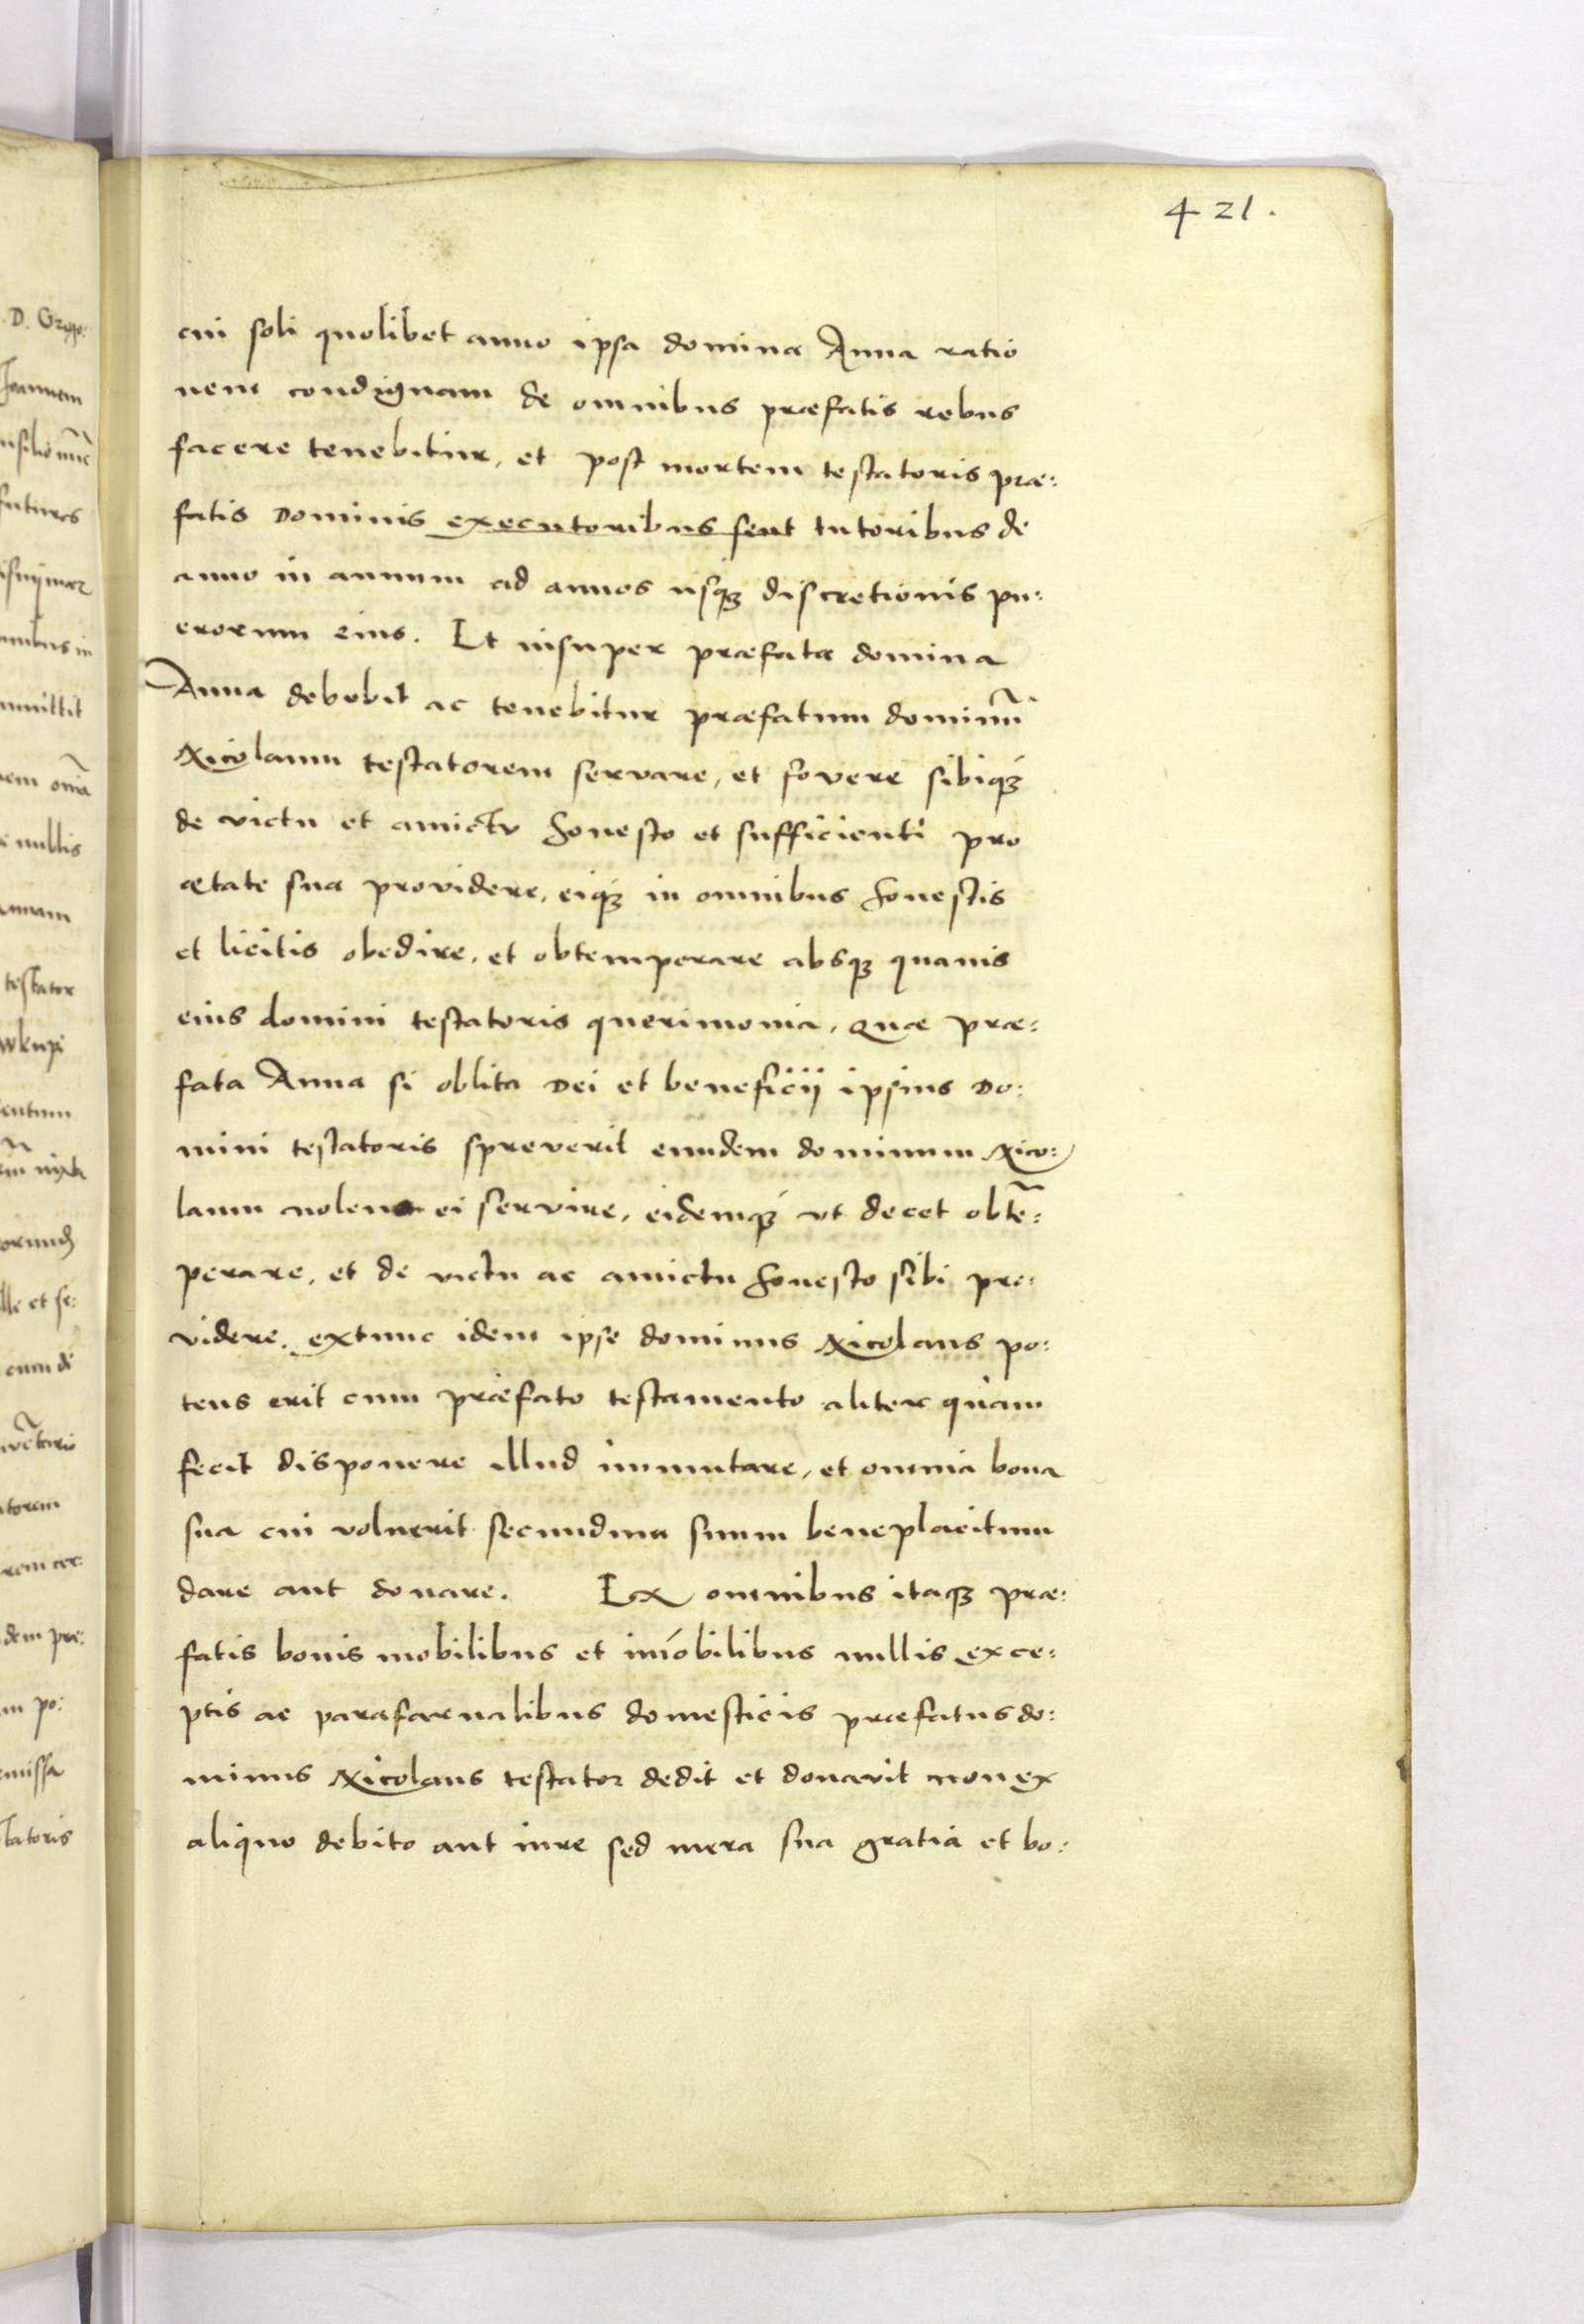 421.
cui soli quolibet anno ipsa domina Anna ratio
nem condignam de omnibus præfatis rebus
facere tenebitur, et post mortem testatoris præ:
fatis Dominis executoribus seut tutoribus de
anno in annum ad annos usqꝫ discretionis pu:
erorum eius. Et insuper præfata domina
Anna debebit ac tenebitur præfatum dominũ
Nicolaum testatorem servare, et fovere sibiqꝫ
de victu et amictu honesto et sufficienti pro
ætate sua providere, eiqꝫ in omnibus honestis
et licitis obedire, et obtemperare absqꝫ quauis
eius domini testatoris querimonia, Quæ præ:
fata Anna si oblita Dei et beneficij ipsius Do:
mini testatoris spreverit eundem dominum Nico:
laum nolens ei servire, eidemqꝫ vt decet obtẽ:
perare, et de victu ac amictu honesto sibi pro:
videre, extunc idem ipse dominus Nicolaus po:
tens erit cum præfato testamento aliter quam
fecit disponere illud immutare, et omnia bona
sua cui voluerit secundum suum beneplacitum
dare aut donare. Ex omnibus itaqꝫ præ:
fatis bonis mobilibus et im̃obilibus nullis exce:
ptis ac parafarnalibus domesticis præfatus do:
minus Nicolaus testator dedit et donavit non ex
aliquo debito aut iure sed mera sua gratia et bo: